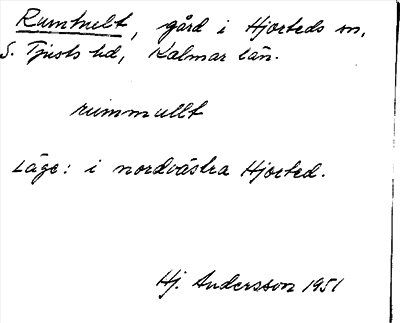 Rumhult, gård i Hjorteds sn,
S. Tjusts hd, Kalmar län.
rummullt
Läge: i nordvästra Hjorted.
Hj. Andersson 1951